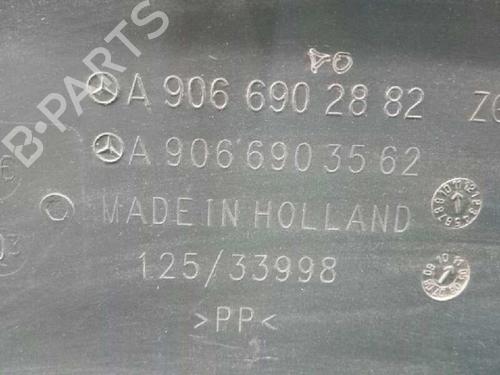 B-PARTS
A 906 690 28 82 Z6
A 906 690 35 62
MADE IN HOLLAND
125/33998
>PP<